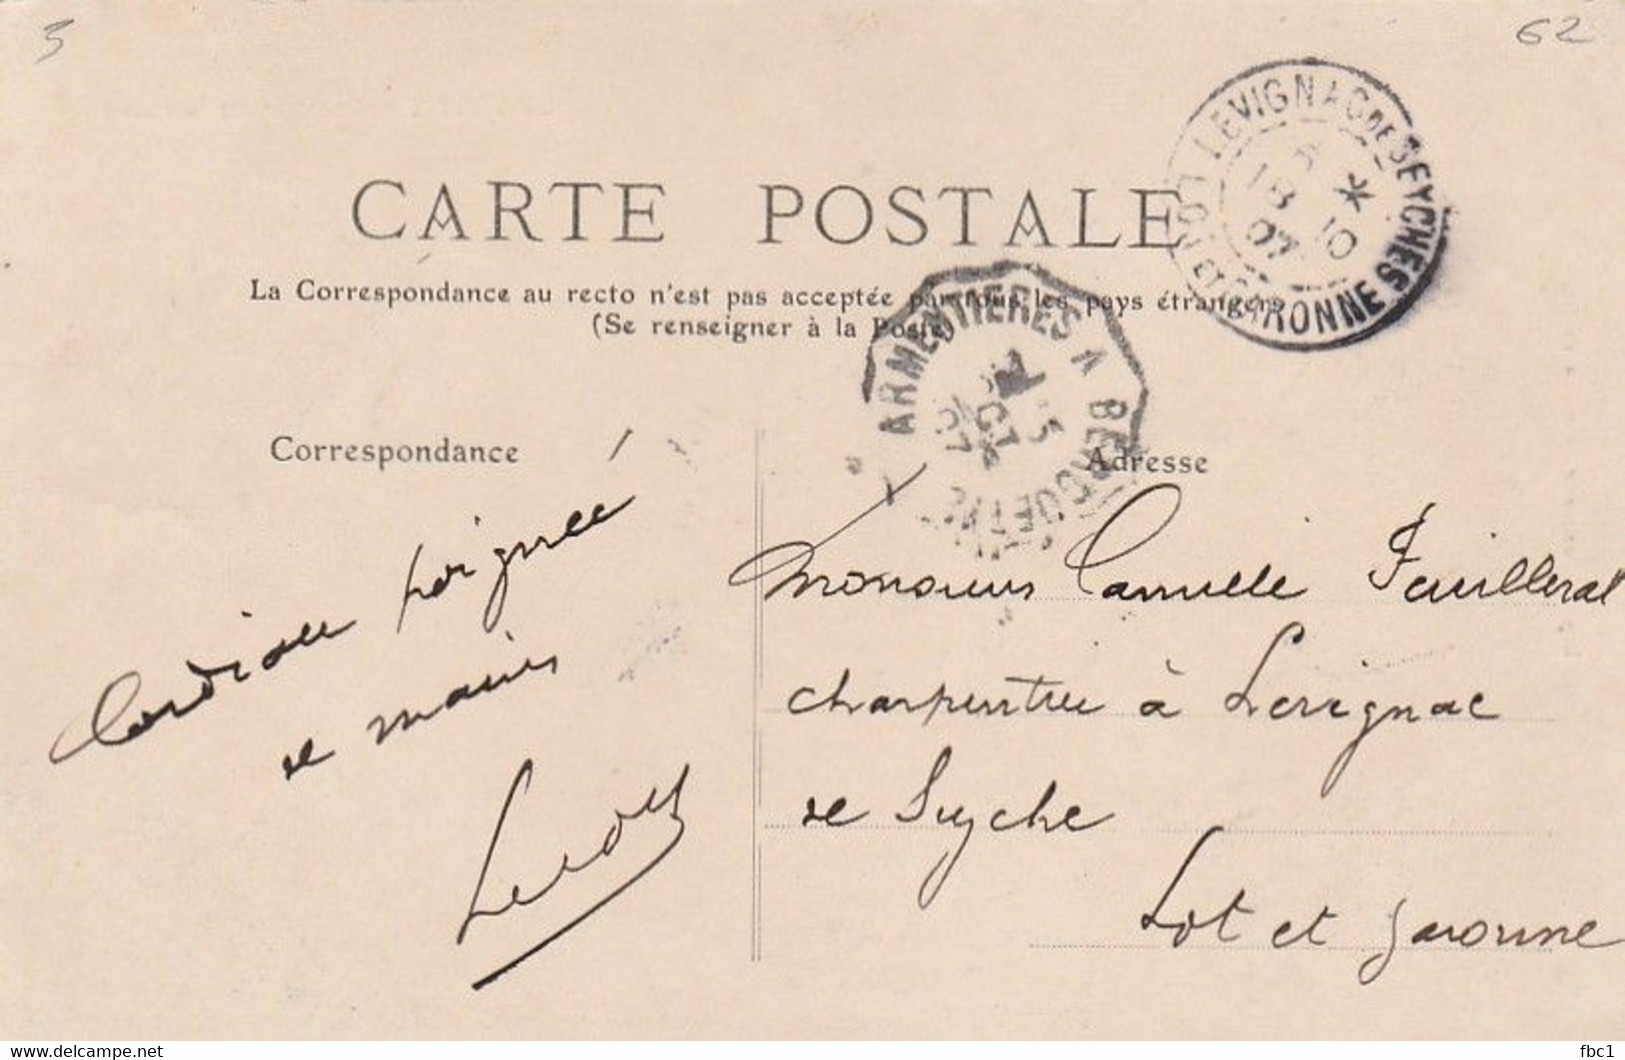 3
62
CARTE POSTALE
La Correspondance au recto n'est pas acceptée par tous les pays étrangers
(Se renseigner à la Poste)
LEVIGNAC DE SEYCHES
LOT ET GARONNE
18 10
07
ARMENTIERES A BERGUETTE
15
OCT
07
Correspondance
Adresse
Cordiale poignée
de mains
Monsieur Camille Feuillerat
charpentier à Levignac
de Seyche
Lot et Garonne
www.delcampe.net
fbc1